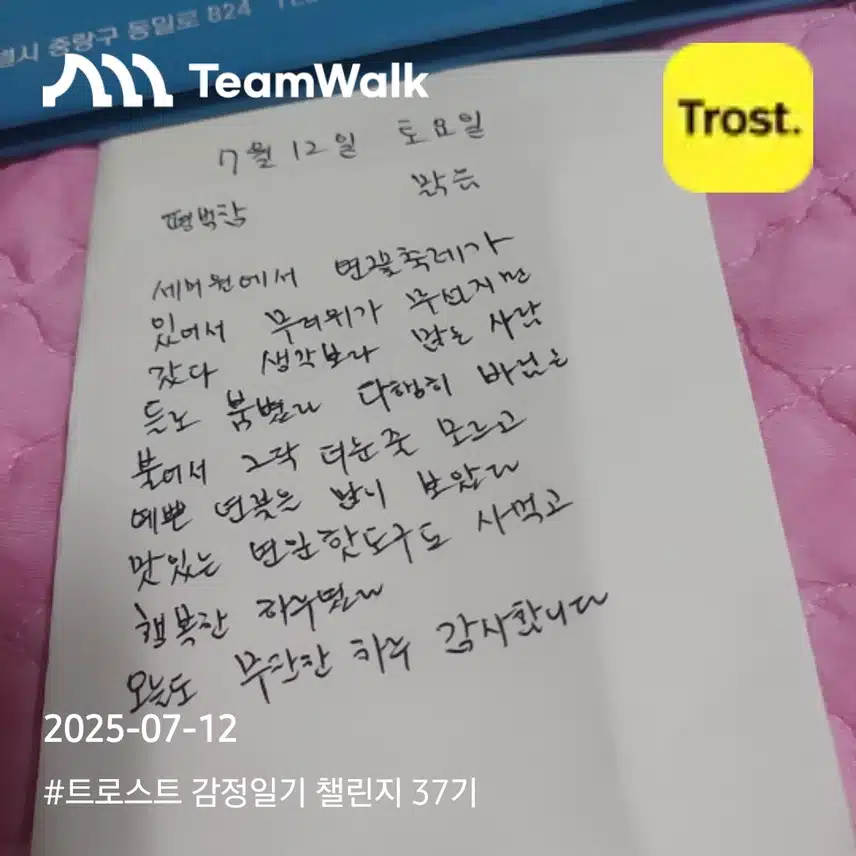 중랑구 동일로 824
TeamWalk
Trost.
7월 12일 토요일
맑음
평범함
세미원에서 연꽃축제가
있어서 무더위가 무섭지만
갔다 생각보다 많은 사람
들로 붐볐다 다행히 바람은
불어서 그닥 더운줄 모르고
예쁜 연꽃은 많이 보았다
맛있는 연잎핫도구도 사먹고
행복한 하루였다
오늘도 무탈한 하루 감사합니다
2025-07-12
#트로스트 감정일기 챌린지 37기